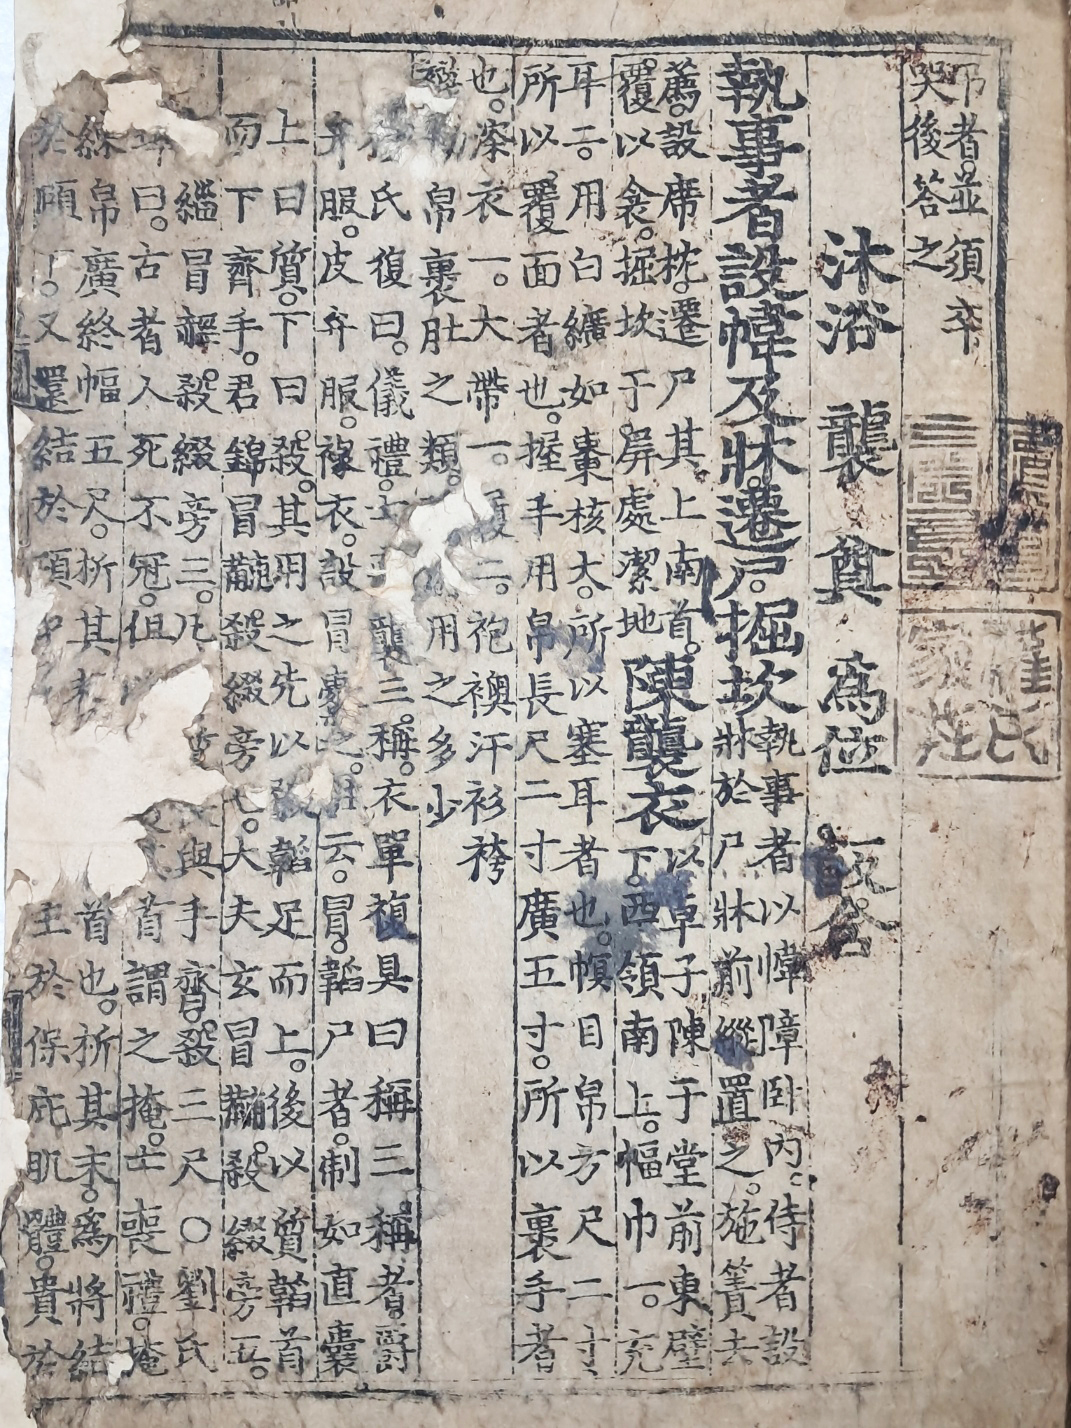 弔者。並須卒
哭後答之
沐浴　襲　奠　爲位　飯含
執事者設幃及牀。遷尸。掘坎
執事者以幃障卧內。侍者設
牀於尸牀前縱置之。施簀去
薦。設席枕。遷尸其上南首。
覆以衾。掘坎于屏處潔地
陳襲衣
以卓子陳于堂前東壁
下。西領南上。幅巾一。充
耳二。用白纊如棗核大。所以塞耳者也。幎目帛方尺二寸
所以覆面者也。握手用帛長尺二寸廣五寸。所以裹手者
也。深衣一。大帶一。履二。袍襖汗衫袴
帛裹肚之類。用之多少
氏復曰。儀禮。士喪襲三稱。衣單複具曰稱三。稱者。爵
弁服。皮弁服。褖衣。設冒櫜之。註云。冒。韜尸者。制如直囊
上曰質。下曰殺。其用之先以殺韜足而上。後以質韜首
而下齊手。君錦冒黼殺綴旁七。大夫玄冒黼。殺綴旁五。
緇冒赬殺。綴旁三。凡 與手齊。殺三尺 〇劉氏
曰。古者人死不冠。但 首謂之掩。士喪禮。掩
練帛廣終幅五尺。析其末 首也。析其末。爲將結
於頤下。又還結於項中 主於保庇肌體。貴於